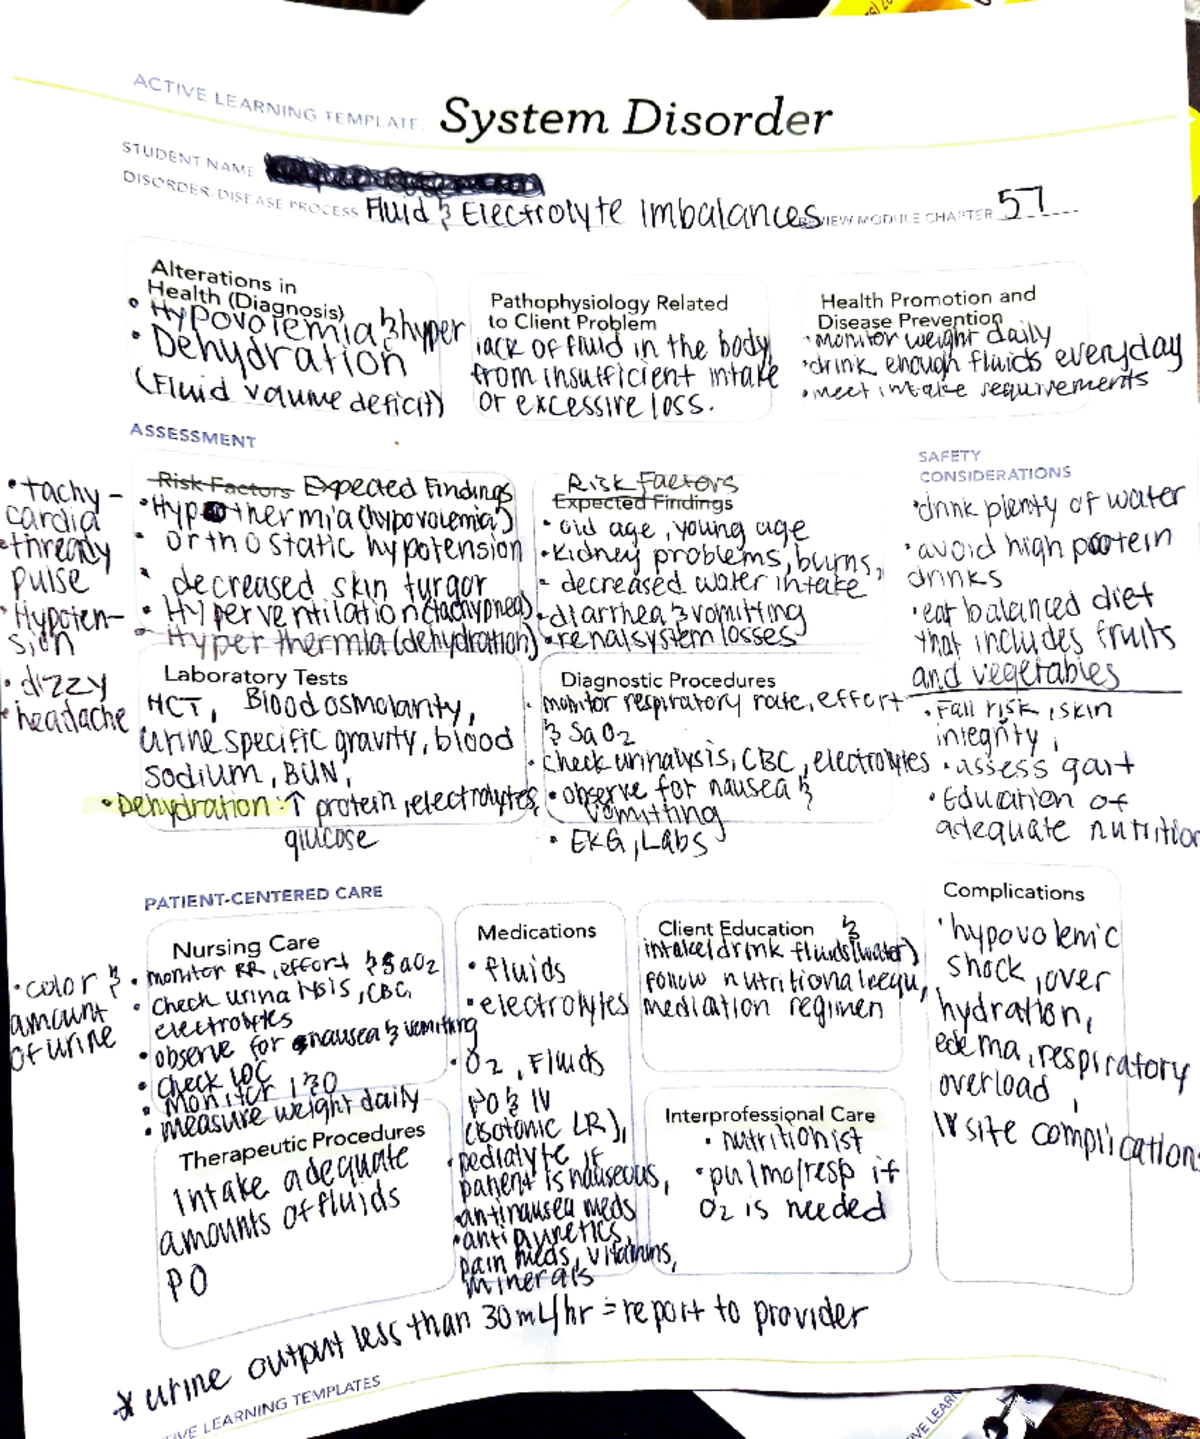 ACTIVE LEARNING TEMPLATE:
System Disorder
STUDENT NAME
DISORDER/DISEASE PROCESS Fluid & Electrolyte Imbalances
REVIEW MODULE CHAPTER 57
Alterations in
Health (Diagnosis)
• Hypovolemia & hyper
• Dehydration
(Fluid volume deficit)
Pathophysiology Related
to Client Problem
lack of fluid in the body
from insufficient intake
or excessive loss.
Health Promotion and
Disease Prevention
• monitor weight daily
• drink enough fluids everyday
• meet intake requirements
ASSESSMENT
• tachy-
cardia
• thready
pulse
• Hypoten-
sion
• dizzy
• headache
Risk Factors Expected Findings
• Hypothermia (hypovolemia)
• orthostatic hypotension
• decreased skin turgor
• Hyperventilation (tachypnea)
• Hyperthermia (dehydration)
Risk Factors
Expected Findings
• old age, young age
• kidney problems, burns,
- decreased water intake
• diarrhea & vomitting
• renal system losses
SAFETY
CONSIDERATIONS
• drink plenty of water
• avoid high protein
drinks
• eat balanced diet
that includes fruits
and vegetables
• Fall risk, skin
integrity,
• assess gait
• Education of
adequate nutrition
Laboratory Tests
HCT, Blood osmolarity,
urine specific gravity, blood
sodium, BUN,
• Dehydration: ↑ protein, electrolytes,
glucose
Diagnostic Procedures
• monitor respiratory rate, effort
& SaO2
• check urinalysis, CBC, electrolytes
• observe for nausea &
vomitting
• EKG, Labs
PATIENT-CENTERED CARE
• color &
amount
of urine
Nursing Care
• monitor RR, effort & SaO2
• check urinalysis, CBC,
electrolytes
• observe for nausea & vomitting
• check LOC
• Monitor I & O
• measure weight daily
Medications
• fluids
• electrolytes
• O2, Fluids
PO & IV
(isotonic LR),
• pedialyte if
patient is nauseous,
• antinausea meds
• antipyretics,
pain meds, vitamins,
minerals
Client Education
intake/drink fluids (water) &
follow nutritional requ,
mediation regimen
Complications
• hypovolemic
shock, over
hydration,
edema, respiratory
overload,
IV site complication
Therapeutic Procedures
Intake adequate
amounts of fluids
PO
Interprofessional Care
• nutritionist
• pulmo/resp if
O2 is needed
* urine output less than 30 mL/hr = report to provider
ACTIVE LEARNING TEMPLATES
ACTIVE LEARN